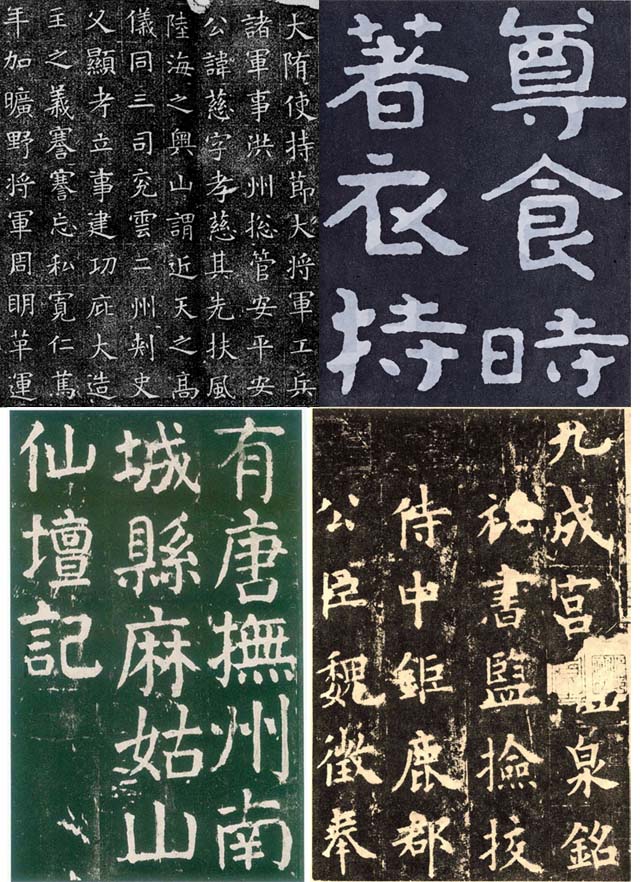 大陏使持節大将軍工兵
諸軍事洪州捴管安平安
公諱慈字孝慈其先扶風
陸海之奥山謂近天之高
儀同三司兖雲二州刾史
父顯考立事建功庇大造
主之義謇謇忘私寛仁篤
年加曠野将軍周明革運
尊食時
著衣持
有唐撫州南
城縣麻姑山
仙壇記
九成宮泉銘
祕書監撿挍
侍中鉅鹿郡
公臣魏徵奉